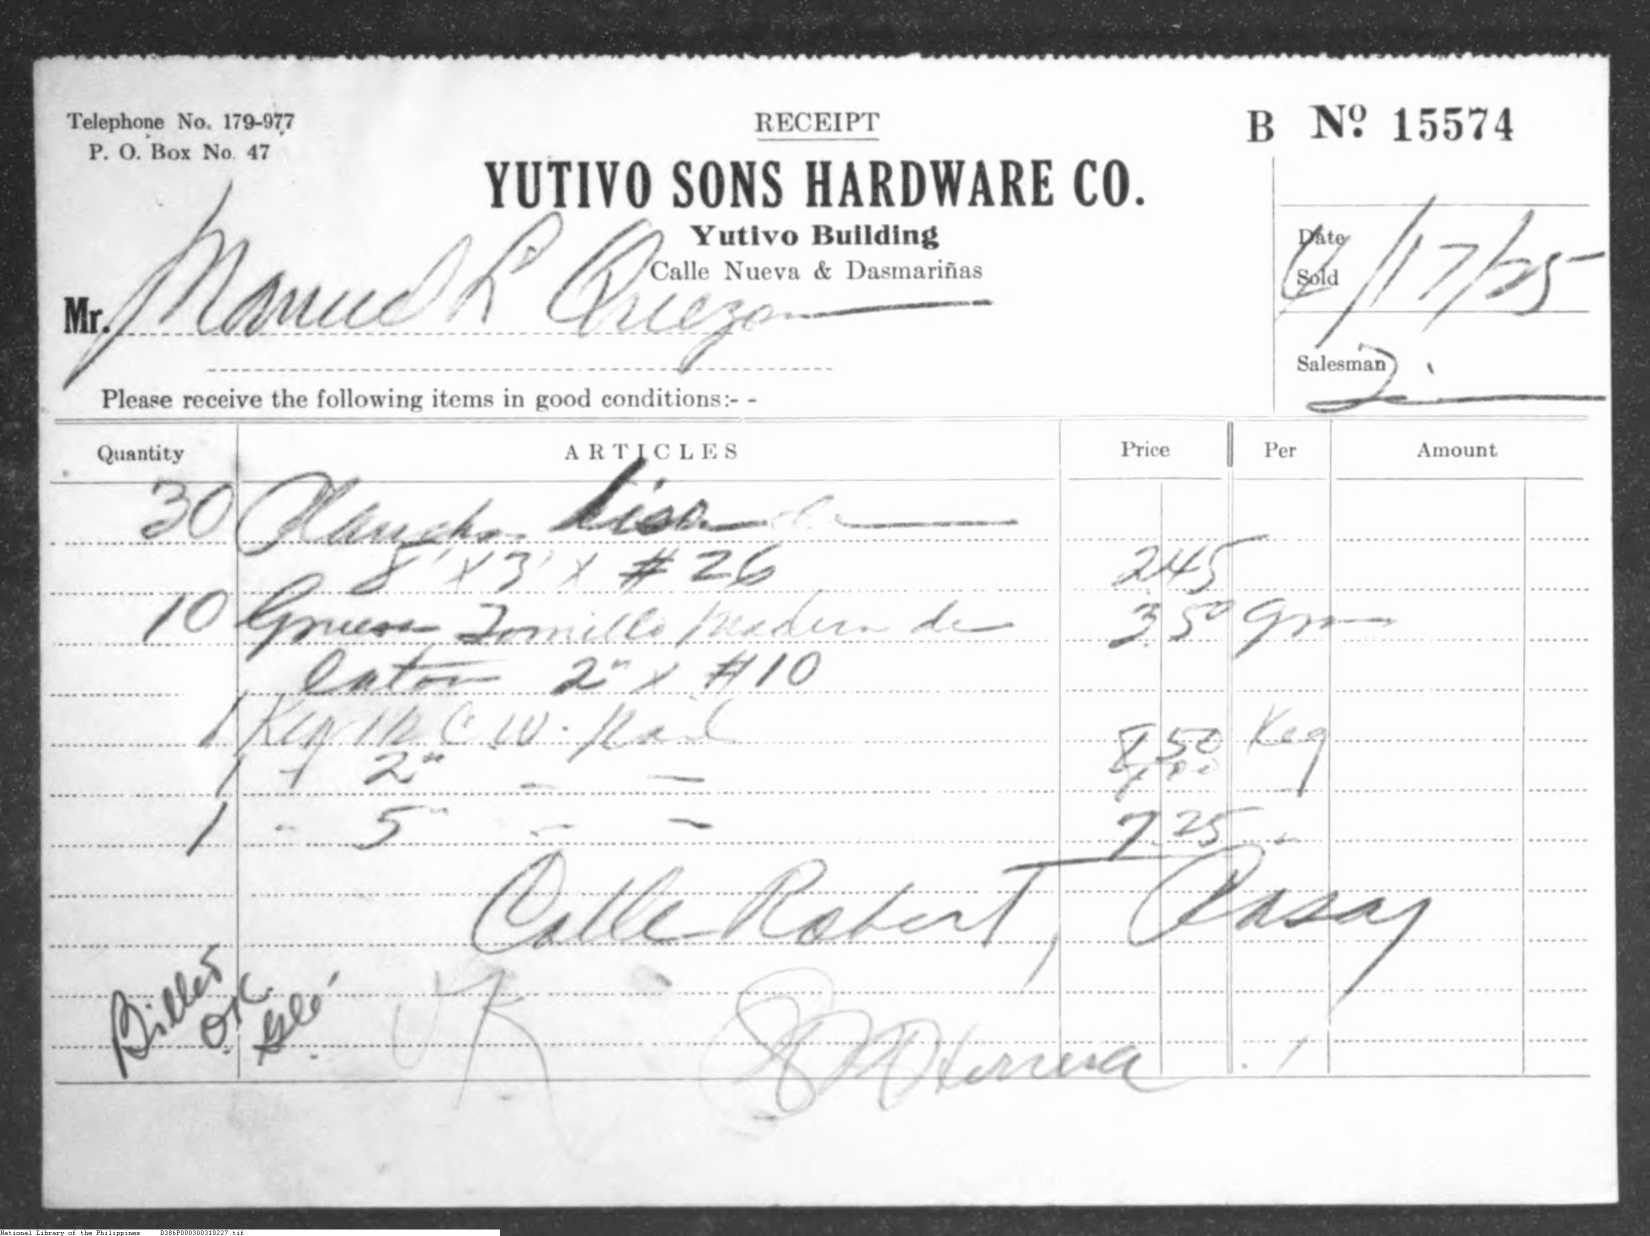 Telephone No. 179-977
P. O. Box No. 47
RECEIPT
B Nº 15574
YUTIVO SONS HARDWARE CO.
Yutivo Building
Calle Nueva & Dasmariñas
Mr. Manuel L Quezon
Date
Sold
/17/25
Salesman 2
Please receive the following items in good conditions:- -
Quantity ARTICLES Price Per Amount
30 Plancha Lisa de
8' x 3' x #26 245
10 Gruesa Tornillo madera de 3.50 Gru
laton 2" x #10
1 Keg C.W. Nail 8 50 Keg
1 2" - -
1 - 5" - - 7.25 -
Calle Robert, Pasay
Billed
O.K.
Herrera
National Library of the Philippines D386P000300310227.tif